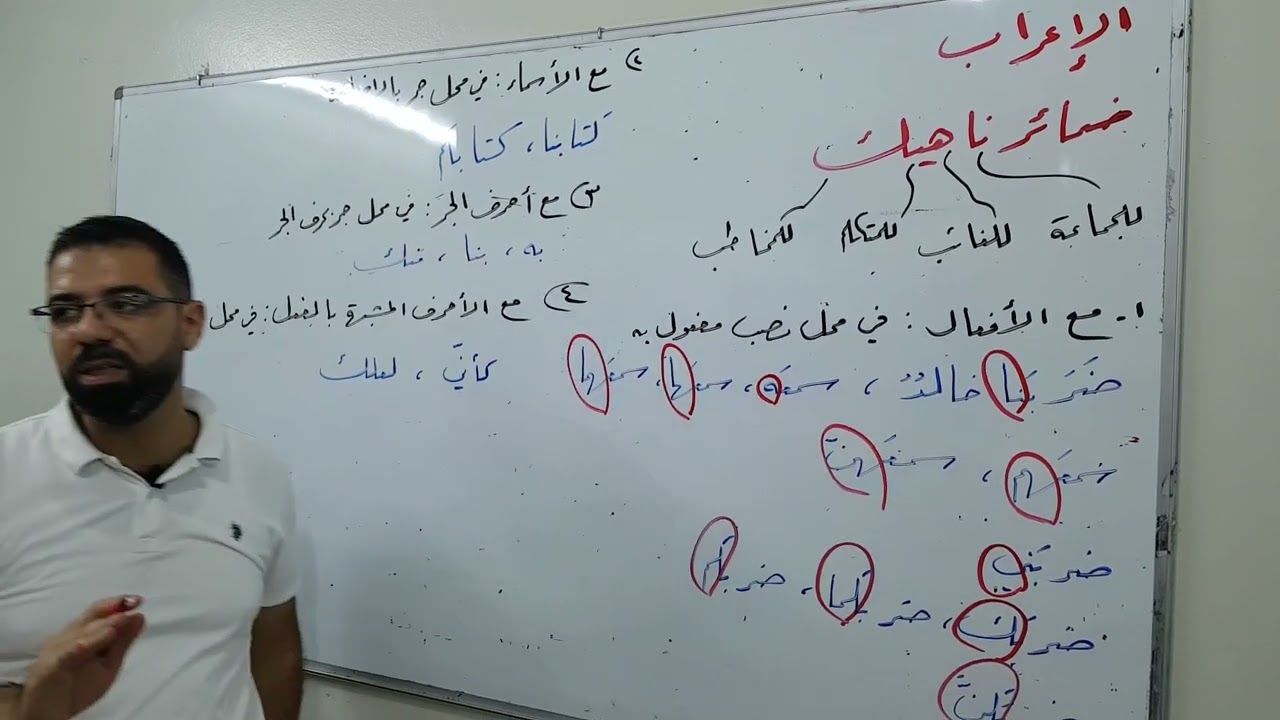 الإعراب
ضمائر ناهيك
للجماعة للغائب للمتكلم للمخاطب
١- مع الأفعال : في محل نصب مفعول به
ضَرَبَنا خالدٌ ، سمعَه ، سمعَها ، سمعَهما
سمعَهم ، سمعَهنّ
ضربَني
ضربَكَ ، ضربَكما ، ضربَكم
كنّ
٢) مع الأسماء : في محل جر
كتابنا ، كتابكم
٣) مع أحرف الجرّ : في محل جر بحرف الجر
به ، بنا ، منك
٤) مع الأحرف المشبهة بالفعل : في محل
كأنّي ، لعلك